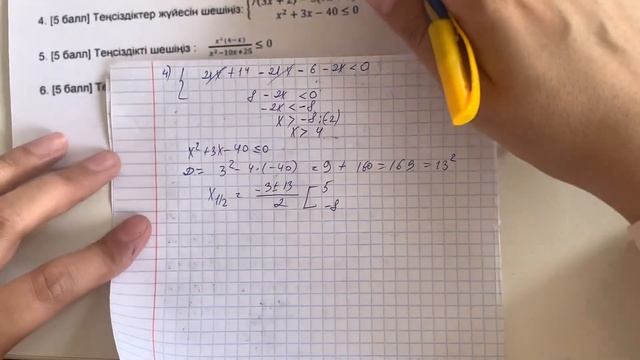 4. [5 балл] Теңсіздіктер жүйесін шешіңіз: {7(3x + 2)
x² + 3x − 40 ≤ 0
5. [5 балл] Теңсіздікті шешіңіз : x²(4−x)/x²−10x+25 ≤ 0
6. [5 балл]
4) { 21x + 14 - 21x - 6 - 2x < 0
8 - 2x < 0
-2x < -8
x > -8:(-2)
x > 4
x² + 3x - 40 ≤ 0
D = 3² - 4·(-40) = 9 + 160 = 169 = 13²
x1/2 = -3±13/2 [ 5
-8